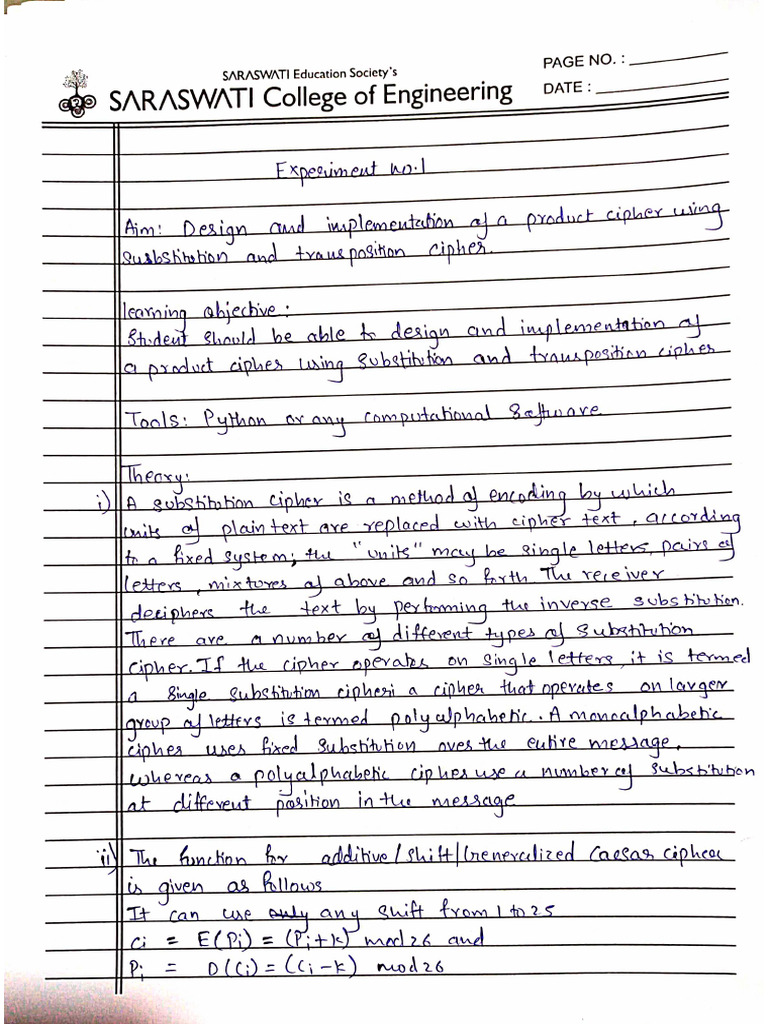 SARASWATI Education Society's
SARASWATI College of Engineering
PAGE NO. :
DATE :
Experiment no.1
Aim: Design and implementation of a product cipher using
susbstitution and transposition cipher.
learning objective:
Student should be able to design and implementation of
a product cipher using substitution and transposition cipher
Tools: Python or any computational Software
Theory:
i) A substitution cipher is a method of encoding by which
units of plain text are replaced with cipher text, according
to a fixed system; the "units" may be single letters, pairs of
letters, mixtures of above and so forth. The receiver
deciphers the text by performing the inverse substitution.
There are a number of different types of substitution
cipher. If the cipher operates on single letters, it is termed
a single substitution cipheri a cipher that operates on larger
group of letters is termed polyalphabetic. A monoalphabetic
cipher uses fixed substitution over the entire message,
whereas a polyalphabetic cipher use a number of substitution
at different position in the message
ii) The function for additive/shift/Generalized Caesar cipher
is given as follows
It can use any shift from 1 to 25
Ci = E(Pi) = (Pi+k) mod 26 and
Pi = D(Ci) = (Ci-k) mod 26